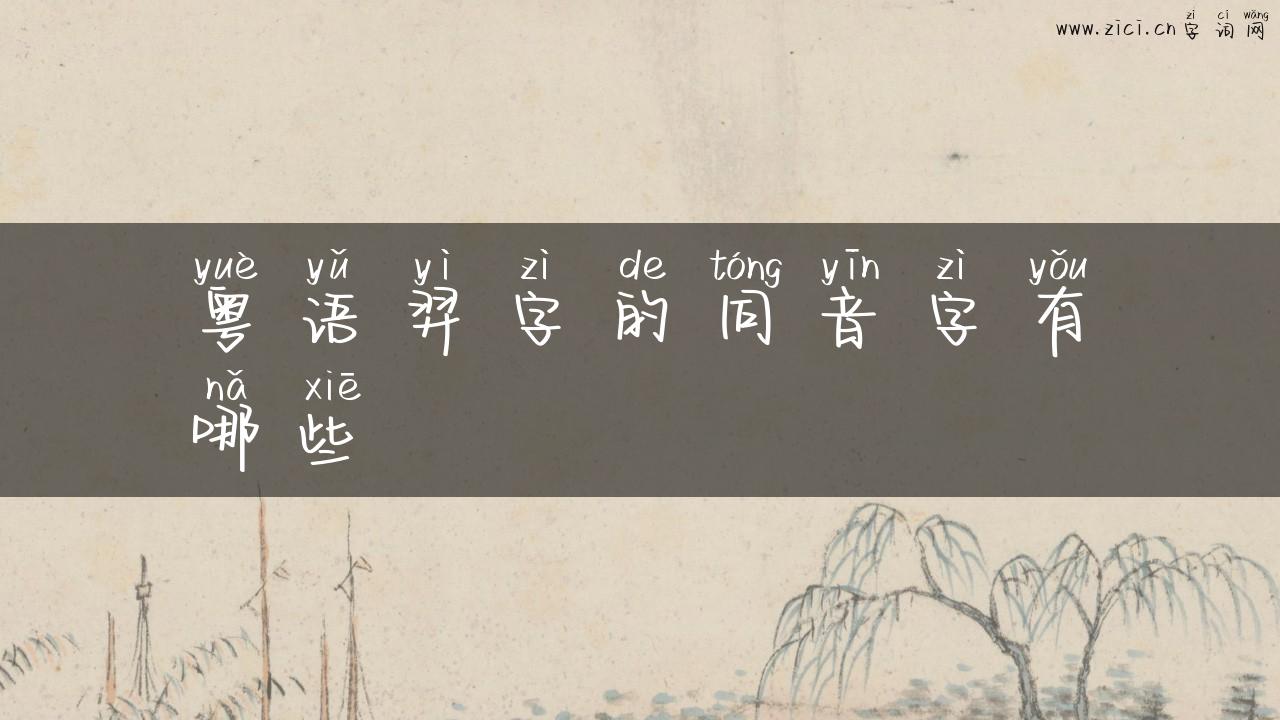 zì cí wǎng
www.zici.cn 字词网
yuè yǔ yì zì de tóng yīn zì yǒu
粤语羿字的同音字有
nǎ xiē
哪些